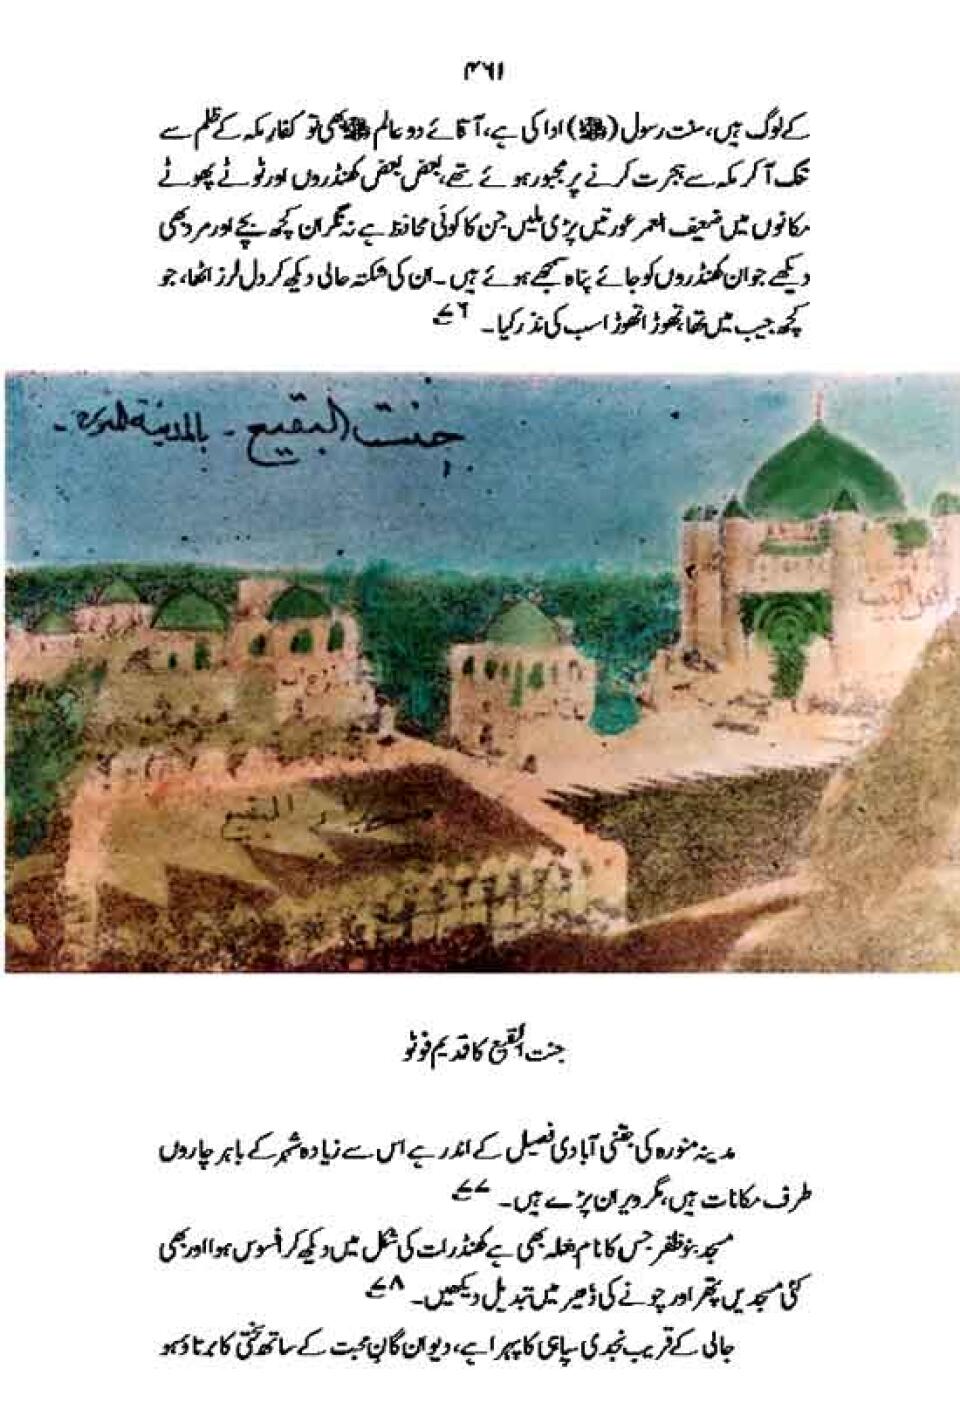 ۴۶۱
کے لوگ ہیں، سنت رسول (ﷺ) ادا کی ہے، آقائے دو عالم ﷺ بھی تو کفار مکہ کے ظلم سے
تنگ آکر مکہ سے ہجرت کرنے پر مجبور ہوئے تھے، بعض بعض کھنڈروں اور ٹوٹے پھوٹے
مکانوں میں ضعیف العمر عورتیں پڑی ملیں جن کا کوئی محافظ ہے نہ نگران کچھ بچے اور مرد بھی
دیکھے جو ان کھنڈروں کو جائے پناہ سمجھے ہوئے ہیں۔ ان کی شکستہ حالی دیکھ کر دل لرز اٹھا، جو
کچھ جیب میں تھا، تھوڑا تھوڑا سب کی نذر کیا۔ ۷۶
جنت البقیع - بالمدینة المنورة -
البقیع
جنت البقیع کا قدیم فوٹو
مدینہ منورہ کی جتنی آبادی فصیل کے اندر ہے اس سے زیادہ شہر کے باہر چاروں
طرف مکانات ہیں، مگر ویران پڑے ہیں۔ ۷۷
مسجد بنو ظفر جس کا نام بغلہ بھی ہے کھنڈرات کی شکل میں دیکھ کر افسوس ہوا اور بھی
کئی مسجدیں پتھر اور چونے کی ڈھیر میں تبدیل دیکھیں۔ ۷۸
جالی کے قریب نجدی سپاہی کا پہرا ہے، دیوان گانِ محبت کے ساتھ سختی کا برتاؤ ہو